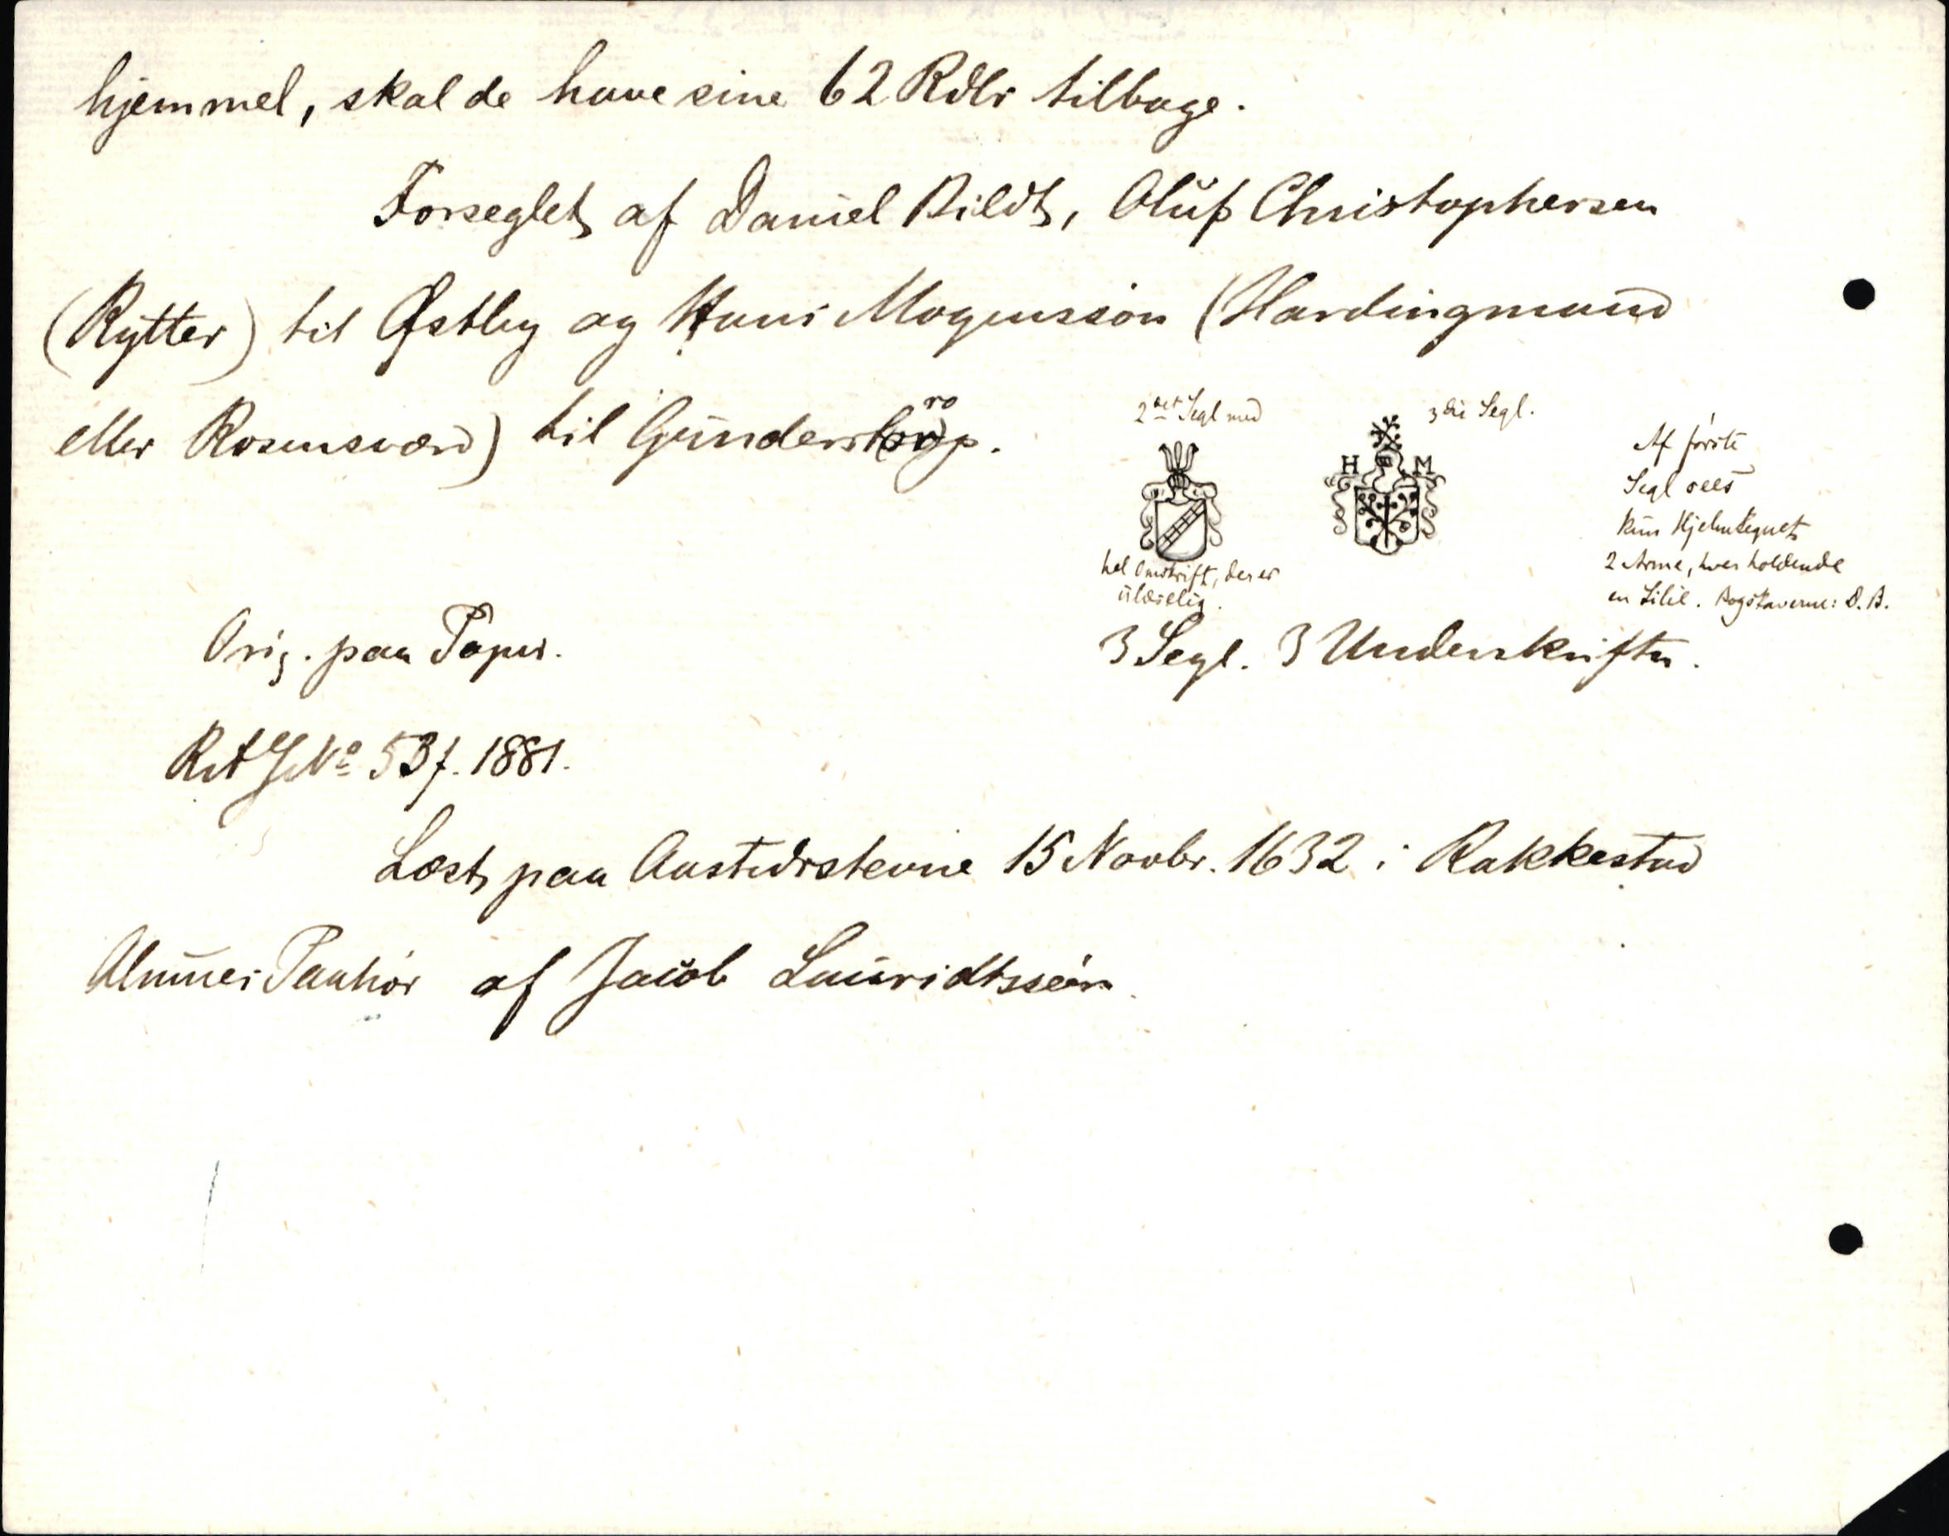 hjemmel, skal de have sine 62 Rdlr tilbage.
Forseglet af Daniel Bildt, Oluf Christophersen
(Rytter) til Østby og Hans Mogenssøn (Hardingmand
eller Rosensværd) til Gunderstrop.
2det Segl med
3die Segl.
H M
Af første
Segl sees
kun Hjelmtegnet
2 Arme, hver holdende
en Lilie. Bogstaverne: D. B.
hel Omskrift, der er
ulæselig.
Orig. paa Papir.
3 Segl. 3 Underskrifter.
RA No 1881.
Læst paa Aastedsstevne 15 Novbr. 1632 i Rakkestad
af Jacob Lauridtssøn